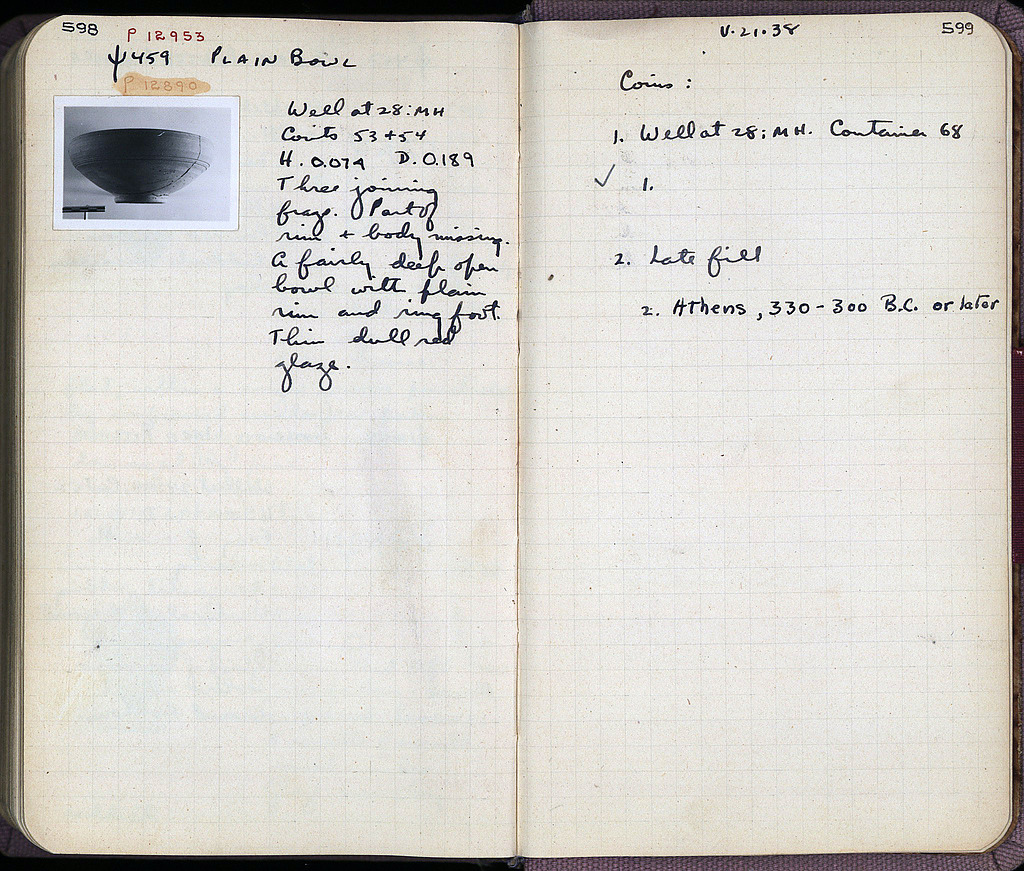 598
P 12953
Ψ459 PLAIN BOWL
P 12890
Well at 28:MH
Conts 53+54
H. 0.074 D. 0.189
Three joining
frags. Part of
rim + body missing.
A fairly deep open
bowl with plain
rim and ring foot.
Thin dull red
glaze.
V.21.38
599
Coins:
1. Well at 28; MH. Container 68
✓ 1.
2. Late fill
2. Athens, 330-300 B.C. or later